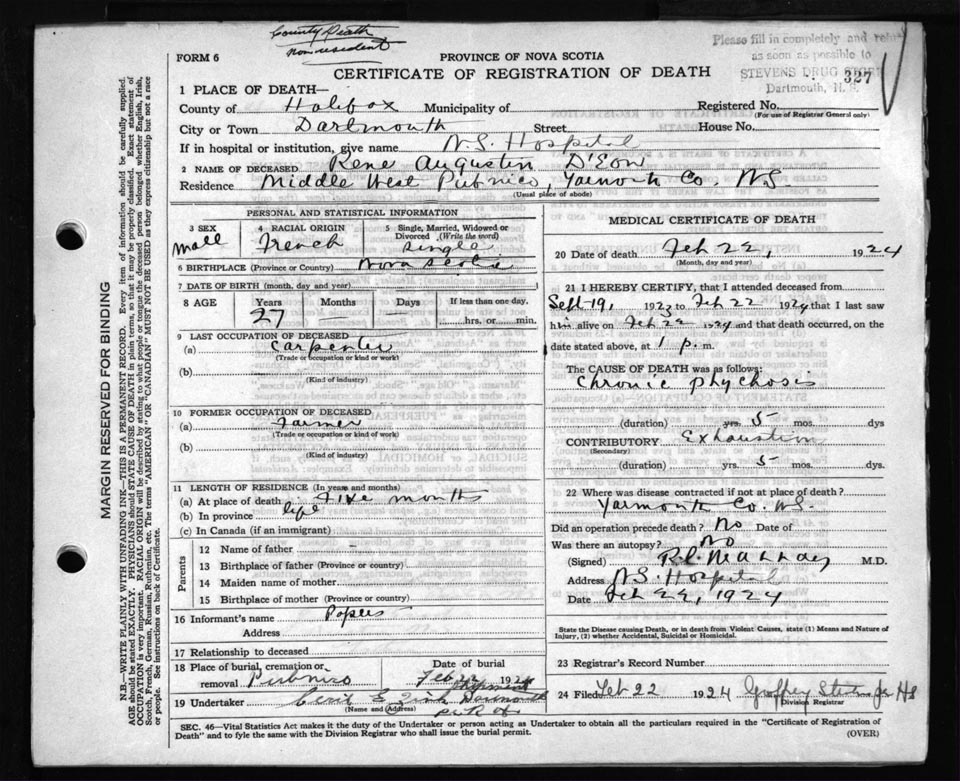 County Death
non-resident
FORM 6
PROVINCE OF NOVA SCOTIA
CERTIFICATE OF REGISTRATION OF DEATH
Please fill in completely and return
as soon as possible to
STEVENS DRUG STORE
Dartmouth, N. S.
327
1 PLACE OF DEATH—
County of Halifax Municipality of
Registered No.
(For use of Registrar General only)
City or Town Dartmouth Street House No.
If in hospital or institution, give name N.S. Hospital
2 NAME OF DECEASED Rene Augustin D'Eon
Residence Middle West Pubnico, Yarmouth Co. N.S
(Usual place of abode)
PERSONAL AND STATISTICAL INFORMATION
3 SEX
Male
4 RACIAL ORIGIN
French
5 Single, Married, Widowed or
Divorced (Write the word)
Single
6 BIRTHPLACE (Province or Country) Nova Scotia
7 DATE OF BIRTH (month, day and year)
8 AGE Years Months Days If less than one day.
27 — — ......hrs. or......min.
9 LAST OCCUPATION OF DECEASED
(a) Carpenter
(Trade or occupation or kind or work)
(b)
(Kind of industry)
10 FORMER OCCUPATION OF DECEASED
(a) Farmer
(Trade or occupation or kind of work)
(b)
(Kind of industry)
11 LENGTH OF RESIDENCE (In years and months)
(a) At place of death Five months
(b) In province life
(c) In Canada (if an immigrant)
Parents
12 Name of father
13 Birthplace of father (Province or country)
14 Maiden name of mother
15 Birthplace of mother (Province or country)
16 Informant's name Papers
Address
17 Relationship to deceased
18 Place of burial, cremation or
removal Pubnico
Date of burial
Feb 22 1924
shipment
19 Undertaker
(Name and Address)
MEDICAL CERTIFICATE OF DEATH
20 Date of death Feb 22, 1924
(Month, day and year)
21 I HEREBY CERTIFY, that I attended deceased from
Sept 19, 1923 to Feb 22 1924 that I last saw
him alive on Feb 22 1924 and that death occurred, on the
date stated above, at 1 p. m.
The CAUSE OF DEATH was as follows:
Chronic Phychosis
(duration) yrs. 5 mos. dys
CONTRIBUTORY Exhaustion
(Secondary)
(duration) yrs. 5 mos. dys.
22 Where was disease contracted if not at place of death?
Yarmouth Co. N.S.
Did an operation precede death? No Date of
Was there an autopsy? No
(Signed) M.D.
Address N.S. Hospital
Date Feb 22, 1924
State the Disease causing Death, or in death from Violent Causes, state (1) Means and Nature of
Injury, (2) whether Accidental, Suicidal or Homicidal.
23 Registrar's Record Number
24 Filed Feb 22 1924
Division Registrar
SEC. 46—Vital Statistics Act makes it the duty of the Undertaker or person acting as Undertaker to obtain all the particulars required in the "Certificate of Registration of
Death" and to fyle the same with the Division Registrar who shall issue the burial permit.
(OVER)
MARGIN RESERVED FOR BINDING
N.B.—WRITE PLAINLY WITH UNFADING INK—THIS IS A PERMANENT RECORD. Every item of information should be carefully supplied.
AGE should be stated EXACTLY. PHYSICIANS should STATE CAUSE OF DEATH in plain terms, so that it may be properly classified. Exact statement of
OCCUPATION is very important. RACIAL ORIGIN will be described by stating to what people or tongue the deceased person belonged whether English, Irish,
Scotch, French, German, Russian, Ruthenian, etc. The terms "AMERICAN" OR "CANADIAN" MUST NOT BE USED as they express citizenship but not a race
or people. See instructions on back of Certificate.